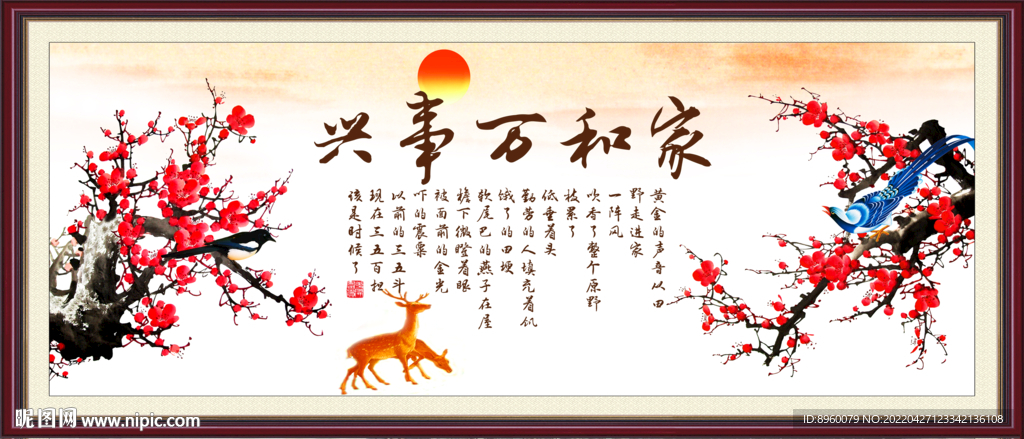 家和万事兴
黄金的声音从田
野走进家
一阵风
吹香了整个原野
枝累了
低垂着头
勤劳的人填充着饥
饿了的田埂
软尾巴的燕子在屋
檐下微瞪着眼
被面前的金光
吓的寰粟
以前的三五斗
现在三五百担
该是时候了
昵图网 www.nipic.com
ID:8960079 NO:20220427123342136108